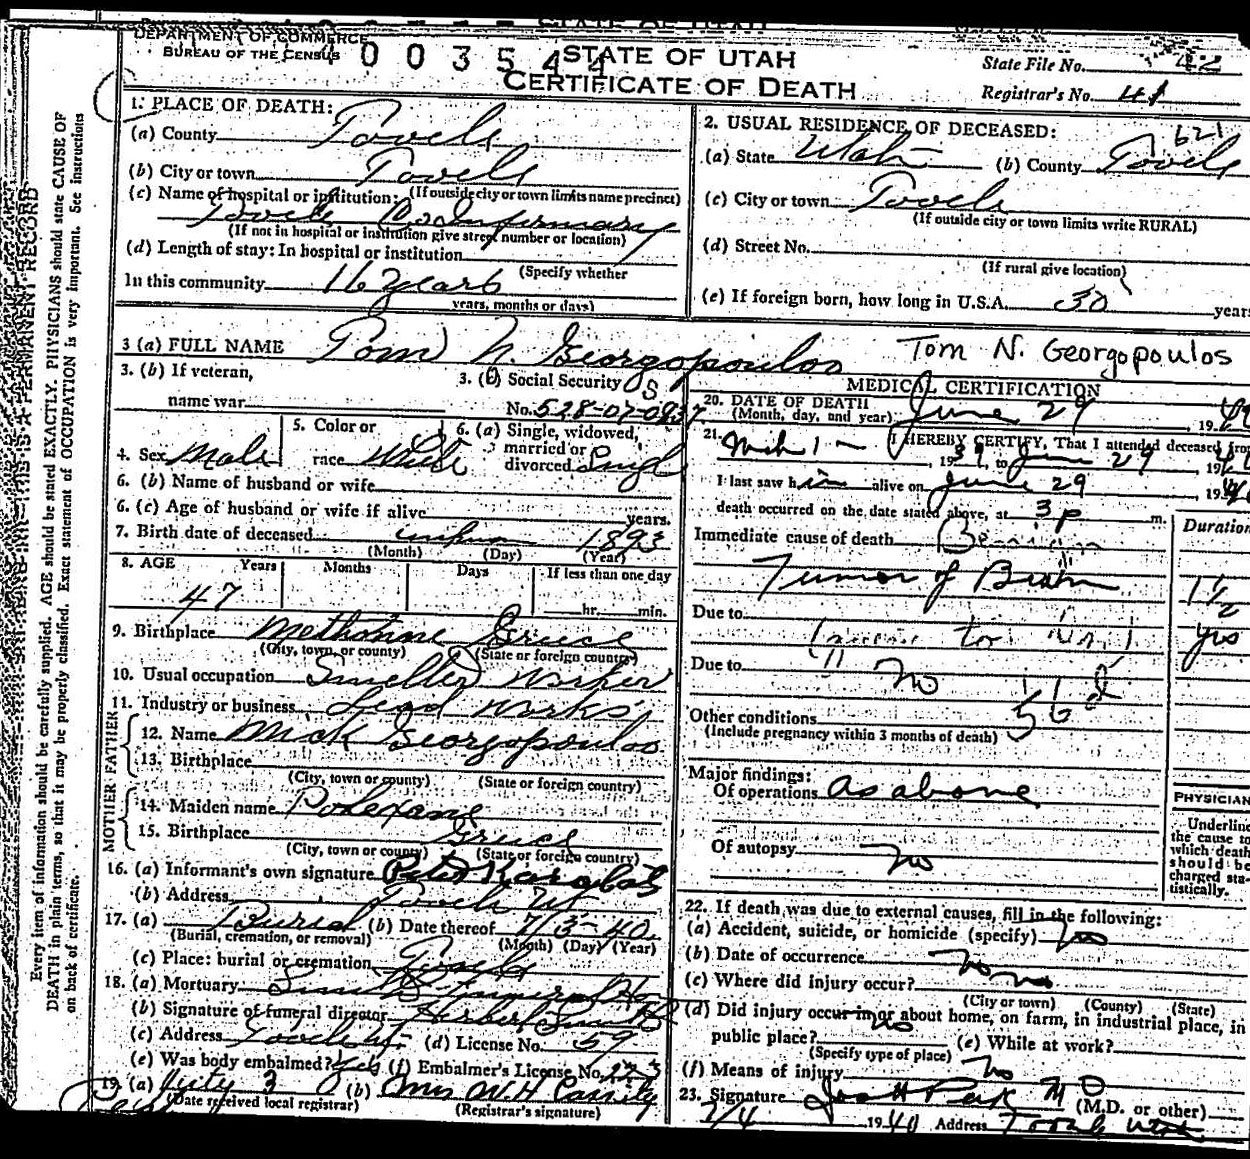 DEPARTMENT OF COMMERCE
BUREAU OF THE CENSUS
400354
STATE OF UTAH
CERTIFICATE OF DEATH
State File No. 42
Registrar's No. 41
1. PLACE OF DEATH:
(a) County Tooele
(b) City or town Tooele
(If outside city or town limits name precinct)
(c) Name of hospital or institution:
Tooele Co. Infirmary
(If not in hospital or institution give street number or location)
(d) Length of stay: In hospital or institution
(Specify whether
In this community 16 years
years, months or days)
2. USUAL RESIDENCE OF DECEASED:
621
(a) State Utah (b) County Tooele
(c) City or town Tooele
(If outside city or town limits write RURAL)
(d) Street No.
(If rural give location)
(e) If foreign born, how long in U.S.A. 30 years
3 (a) FULL NAME Tom N. Georgopoulos Tom N. Georgopoulos
3. (b) If veteran,
name war
3. (c) Social Security
No. 528-07-0837
4. Sex Male
5. Color or
race White
6. (a) Single, widowed,
married or
divorced Singl
6. (b) Name of husband or wife
6. (c) Age of husband or wife if alive years.
7. Birth date of deceased unknown 1893
(Month) (Day) (Year)
8. AGE Years Months Days If less than one day
47 hr. min.
9. Birthplace Methonne Greece
(City, town, or county) (State or foreign country)
10. Usual occupation Smelter Worker
11. Industry or business Lead Works
FATHER
12. Name Nick Georgopoulos
13. Birthplace
(City, town or county) (State or foreign country)
MOTHER
14. Maiden name Polexane
15. Birthplace Greece
(City, town or county) (State or foreign country)
16. (a) Informant's own signature Peter
(b) Address Tooele Ut
17. (a) Burial (b) Date thereof 7/3-40
(Burial, cremation, or removal) (Month) (Day) (Year)
(c) Place: burial or cremation Tooele
18. (a) Mortuary Smith Funeral Ho
(b) Signature of funeral director Herbert Smith
(c) Address Tooele Ut. (d) License No. 59
(e) Was body embalmed? Yes (f) Embalmer's License No. 223
19. (a) July 3 (b) Mrs W.H. Cassity
(Date received local registrar) (Registrar's signature)
MEDICAL CERTIFICATION
20. DATE OF DEATH
(Month, day, and year) June 29, 1940
21. I HEREBY CERTIFY, That I attended deceased from
Mch 1 - , 1939, to June 29, 1940
I last saw him alive on June 29, 1940
death occurred on the date stated above, at 3 p m.
Duration
Immediate cause of death Benign
Tumor of Brain 1 1/2 yrs
Due to
Due to " No
56 d
Other conditions
(Include pregnancy within 3 months of death)
Major findings:
Of operations As above
Of autopsy No
PHYSICIAN
Underline
the cause to
which death
should be
charged sta-
tistically.
22. If death was due to external causes, fill in the following:
(a) Accident, suicide, or homicide (specify) No
(b) Date of occurrence No
(c) Where did injury occur? No
(City or town) (County) (State)
(d) Did injury occur in or about home, on farm, in industrial place, in
public place? No (e) While at work?
(Specify type of place)
(f) Means of injury No
23. Signature Jos H Peck M D (M.D. or other)
7/4 1940 Address Tooele Utah
Every item of information should be carefully supplied. AGE should be stated EXACTLY. PHYSICIANS should state CAUSE OF
DEATH in plain terms, so that it may be properly classified. Exact statement of OCCUPATION is very important. See instructions
on back of certificate.
THIS IS A PERMANENT RECORD